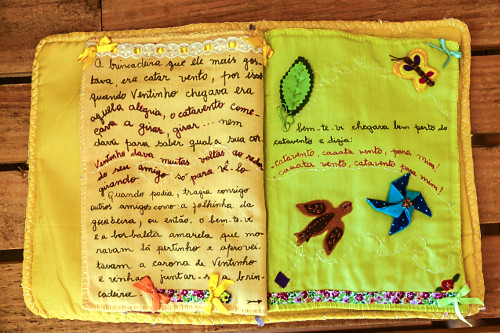 A brincadeira que ele mais gos-
tava era catar vento, por isso
quando Ventinho chegava era
aquela alegria, o catavento come-
çava a girar, girar... nem
dava para saber qual a sua cor.
Ventinho dava muitas voltas ao redor
do seu amigo só para vê-lo
girando.
Quando podia, trazia consigo
outros amigos como: a folhinha da
goiabeira, ou então o bem-te-vi
e a borboleta amarela que mo-
ravam lá pertinho e aprovei-
tavam a carona de Ventinho
e vinham juntar-se a brin-
cadeira.
O bem-te-vi chegava bem perto do
catavento e dizia:
-catavento, caaata vento, para mim!
caaata vento, catavento para mim!